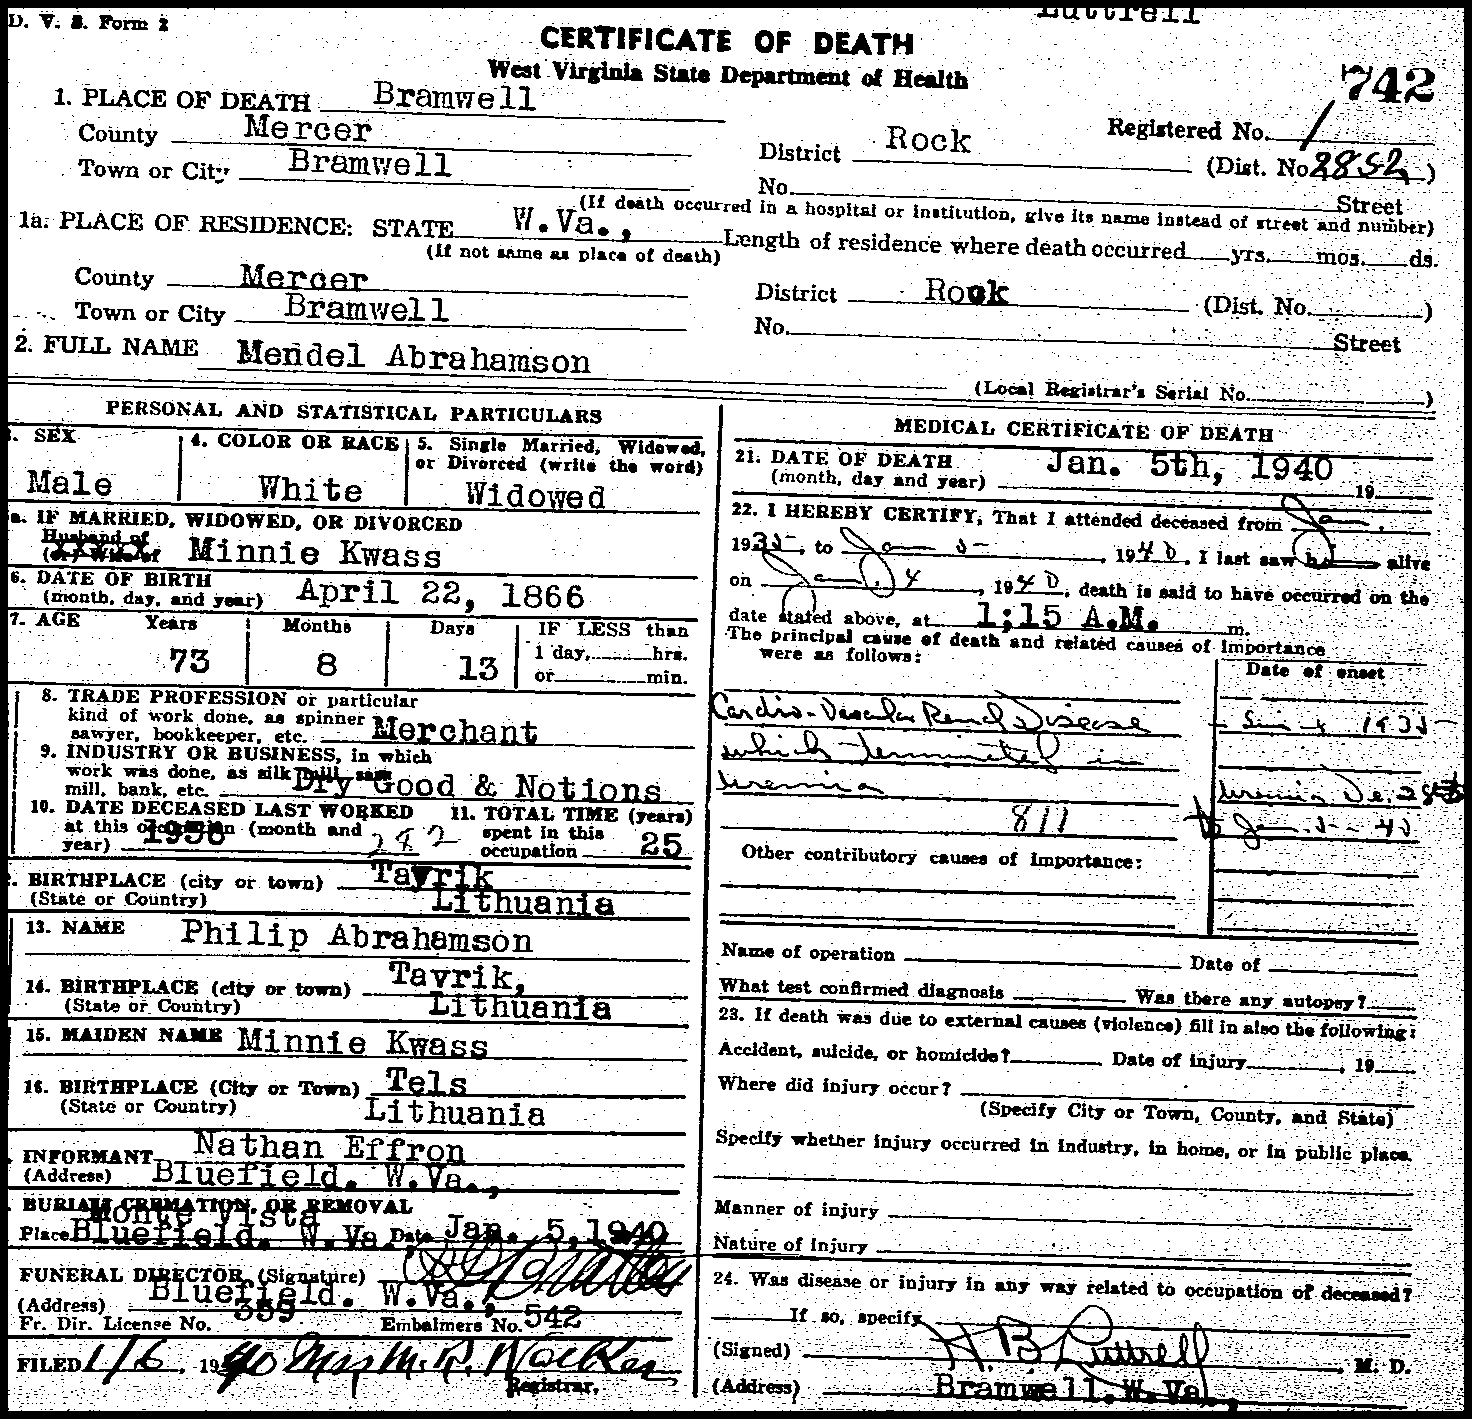 Luttrell
D. V. S. Form 2
CERTIFICATE OF DEATH
West Virginia State Department of Health
742
1. PLACE OF DEATH Bramwell
County Mercer
District Rock
Registered No. 1
Town or City Bramwell
(Dist. No. 2852)
No. Street
(If death occurred in a hospital or institution, give its name instead of street and number)
1a. PLACE OF RESIDENCE: STATE W.Va., Length of residence where death occurred yrs. mos. ds.
(If not same as place of death)
County Mercer District Rock (Dist. No. )
Town or City Bramwell No. Street
2. FULL NAME Mendel Abrahamson
(Local Registrar's Serial No. )
PERSONAL AND STATISTICAL PARTICULARS
3. SEX
Male
4. COLOR OR RACE
White
5. Single Married, Widowed,
or Divorced (write the word)
Widowed
a. IF MARRIED, WIDOWED, OR DIVORCED
Husband of
(or) Wife of Minnie Kwass
6. DATE OF BIRTH
(month, day, and year) April 22, 1866
7. AGE Years Months Days IF LESS than
73 8 13 1 day, hrs.
or min.
8. TRADE PROFESSION or particular
kind of work done, as spinner
sawyer, bookkeeper, etc. Merchant
9. INDUSTRY OR BUSINESS, in which
work was done, as silk mill, saw
mill, bank, etc. Dry Good & Notions
10. DATE DECEASED LAST WORKED
at this occupation (month and
year) 242
11. TOTAL TIME (years)
spent in this
occupation 25
BIRTHPLACE (city or town) Tavrik
(State or Country) Lithuania
13. NAME Philip Abrahamson
14. BIRTHPLACE (city or town) Tavrik,
(State or Country) Lithuania
15. MAIDEN NAME Minnie Kwass
16. BIRTHPLACE (City or Town) Tels
(State or Country) Lithuania
INFORMANT Nathan Effron
(Address) Bluefield. W.Va.,
BURIAL CREMATION, OR REMOVAL
Monte Vista
Place Bluefield. W.Va., Date Jan. 5, 1940
FUNERAL DIRECTOR (Signature)
(Address) Bluefield. W.Va.,
Fr. Dir. License No. 359 Embalmers No. 542
FILED 1/6, 1940 Mrs. M. R. Walker
Registrar.
MEDICAL CERTIFICATE OF DEATH
21. DATE OF DEATH Jan. 5th, 1940
(month, day and year) 19
22. I HEREBY CERTIFY, That I attended deceased from Jan.
1935, to Jan 5, 1940, I last saw h alive
on Jan. 4, 1940, death is said to have occurred on the
date stated above, at 1;15 A.M. m.
The principal cause of death and related causes of importance
were as follows:
Date of onset
Cardio-Vascular Renal Disease
1935
which terminated in
uremia
Uremia De. 28
811
to Jan. 5-40
Other contributory causes of importance:
Name of operation Date of
What test confirmed diagnosis Was there any autopsy?
23. If death was due to external causes (violence) fill in also the following:
Accident, suicide, or homicide? Date of injury , 19
Where did injury occur?
(Specify City or Town, County, and State)
Specify whether injury occurred in industry, in home, or in public place.
Manner of injury
Nature of injury
24. Was disease or injury in any way related to occupation of deceased?
If so, specify
(Signed) H. B. Luttrell M. D.
(Address) Bramwell. W.Va.,